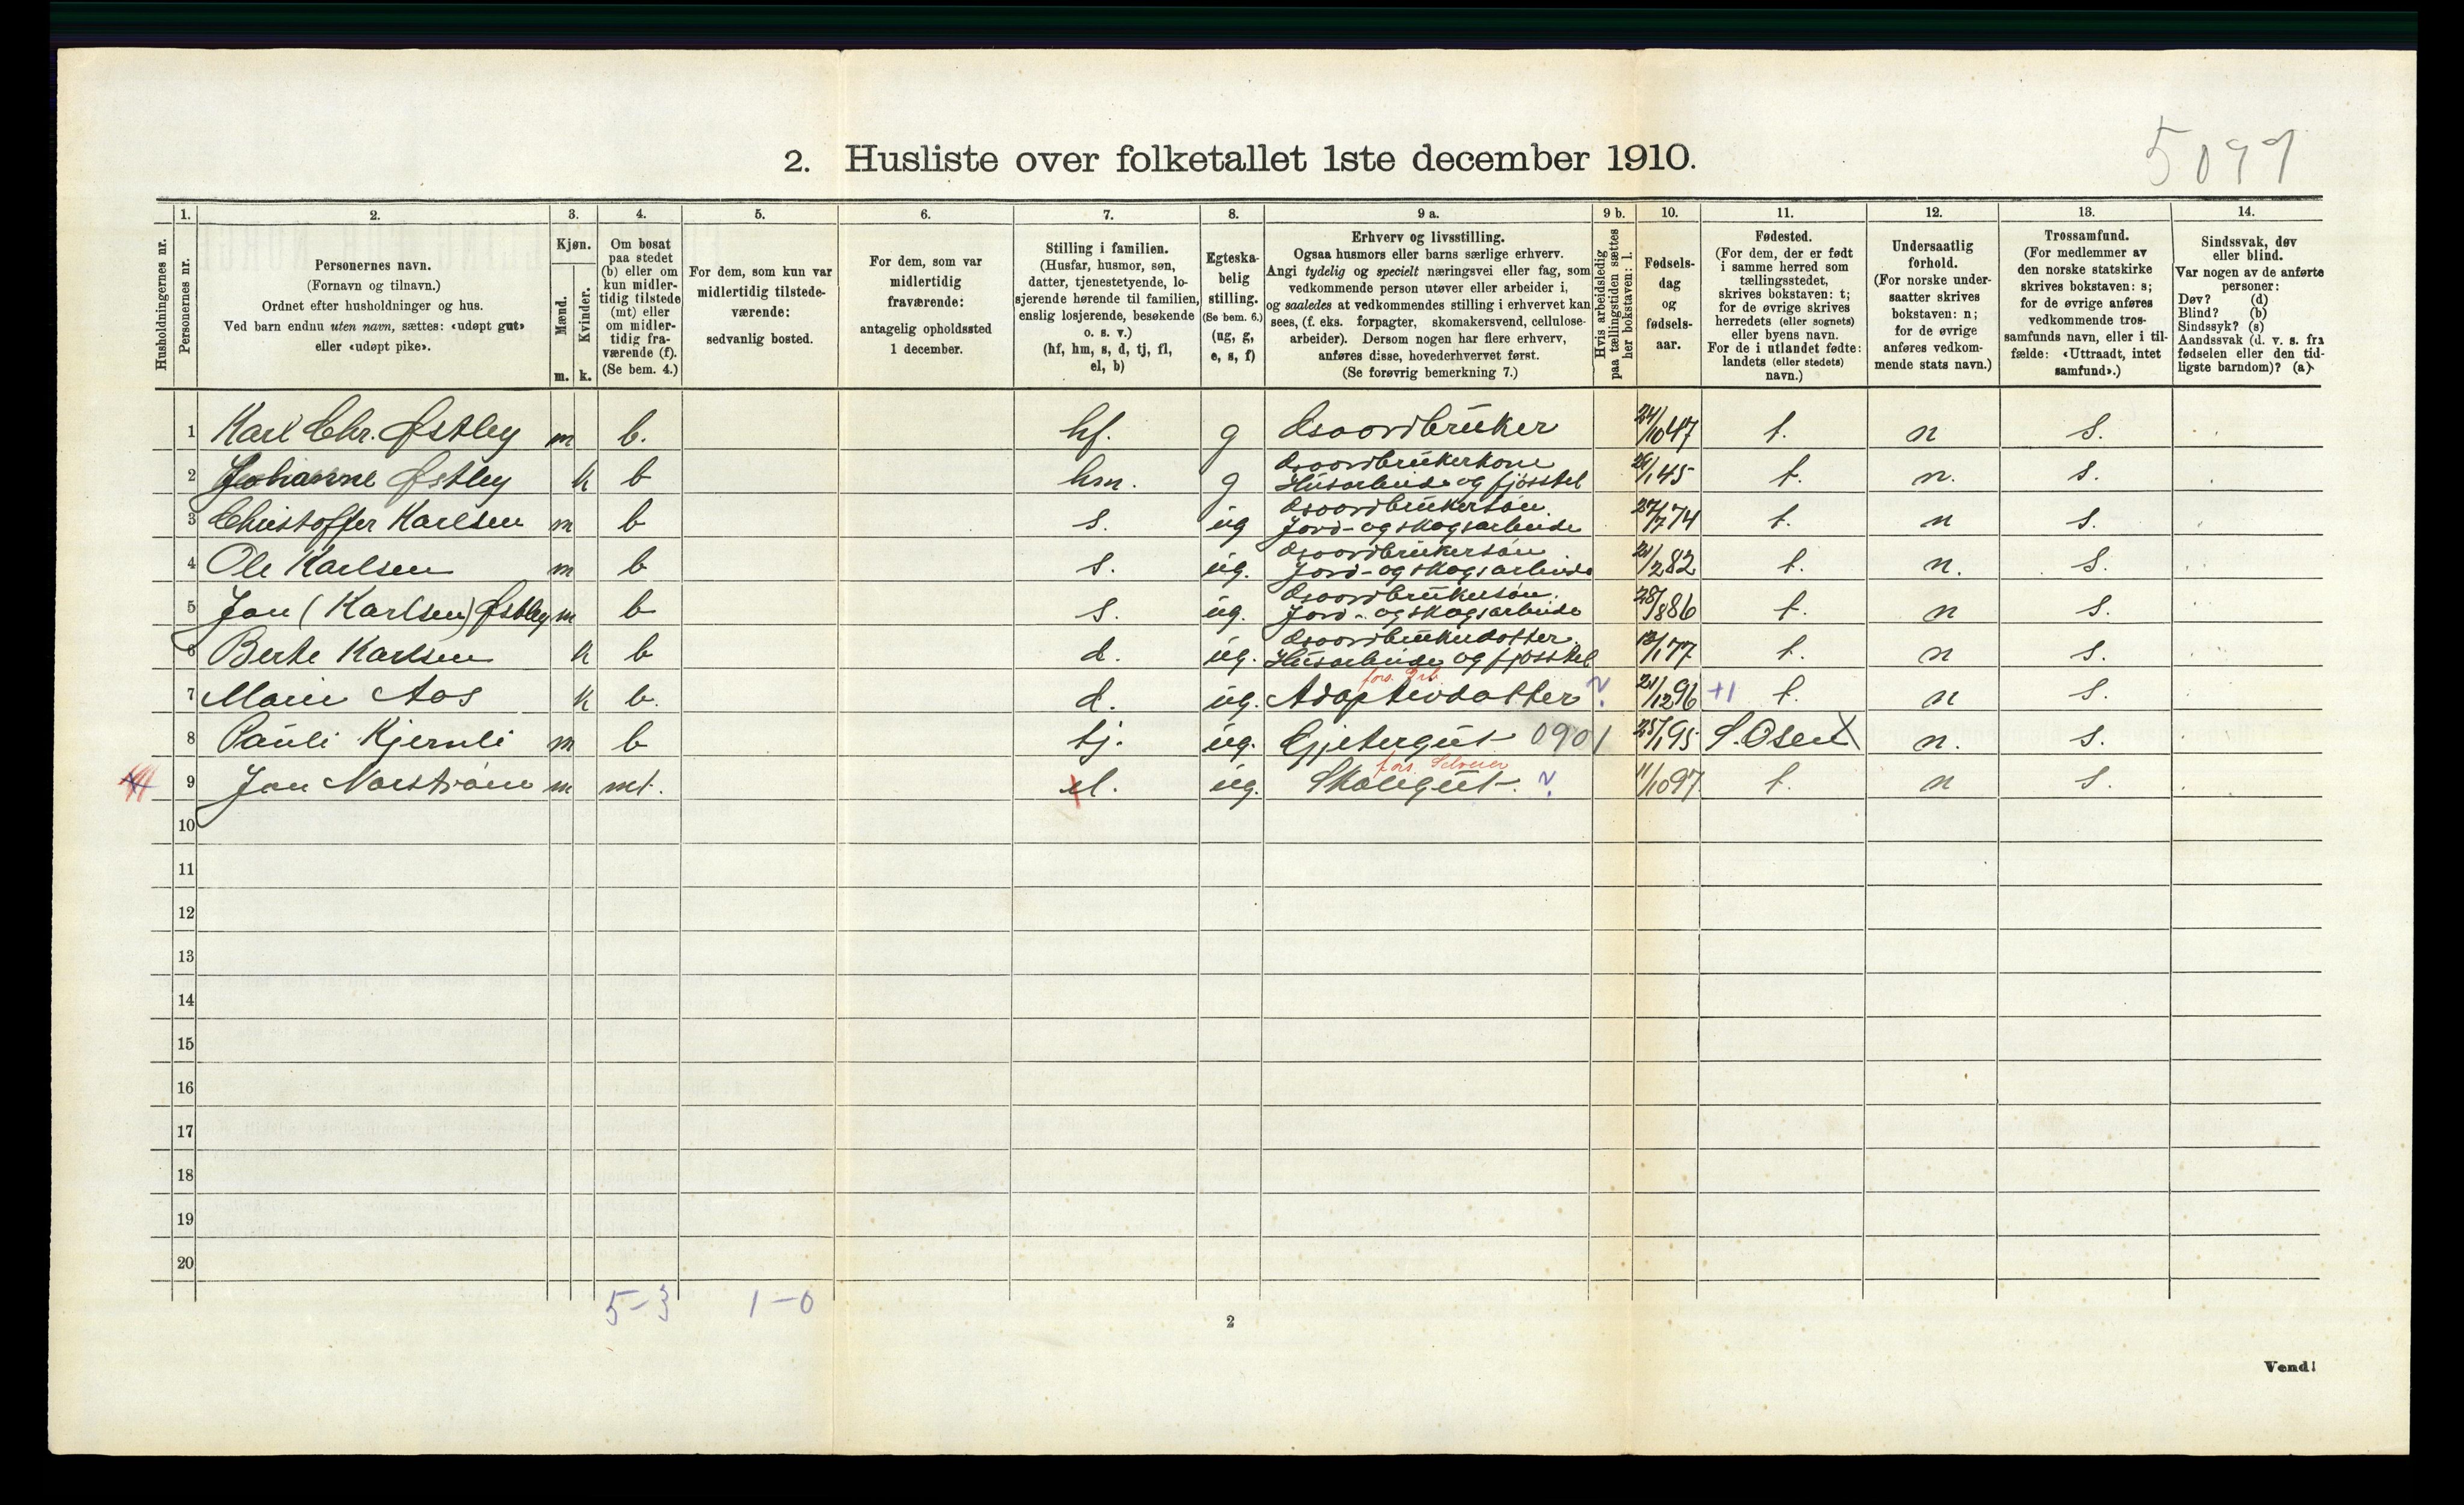 5099
2. Husliste over folketallet 1ste december 1910.
1. 2. 3. 4. 5. 6. 7. 8. 9 a. 9 b. 10. 11. 12. 13. 14.
Husholdningernes nr.
Personernes nr.
Personernes navn.
(Fornavn og tilnavn.)
Ordnet efter husholdninger og hus.
Ved barn endnu uten navn, sættes: «udøpt gut»
eller «udøpt pike».
Kjøn.
Mænd.
m.
Kvinder.
k.
Om bosat
paa stedet
(b) eller om
kun midler-
tidig tilstede
(mt) eller
om midler-
tidig fra-
værende (f).
(Se bem. 4.)
For dem, som kun var
midlertidig tilstede-
værende:
sedvanlig bosted.
For dem, som var
midlertidig
fraværende:
antagelig opholdssted
1 december.
Stilling i familien.
(Husfar, husmor, søn,
datter, tjenestetyende, lo-
sjerende hørende til familien,
enslig losjerende, besøkende
o. s. v.)
(hf, hm, s, d, tj, fl,
el, b)
Egteska-
belig
stilling.
(Se bem. 6.)
(ug, g,
e, s, f)
Erhverv og livsstilling.
Ogsaa husmors eller barns særlige erhverv.
Angi tydelig og specielt næringsvei eller fag, som
vedkommende person utøver eller arbeider i,
og saaledes at vedkommendes stilling i erhvervet kan
sees, (f. eks. forpagter, skomakersvend, cellulose-
arbeider). Dersom nogen har flere erhverv,
anføres disse, hovederhvervet først.
(Se forøvrig bemerkning 7.)
Hvis arbeidsledig
paa tællingstiden sættes
her bokstaven: l.
Fødsels-
dag
og
fødsels-
aar.
Fødested.
(For dem, der er født
i samme herred som
tællingsstedet,
skrives bokstaven: t;
for de øvrige skrives
herredets (eller sognets)
eller byens navn.
For de i utlandet fødte:
landets (eller stedets)
navn.)
Undersaatlig
forhold.
(For norske under-
saatter skrives
bokstaven: n;
for de øvrige
anføres vedkom-
mende stats navn.)
Trossamfund.
(For medlemmer av
den norske statskirke
skrives bokstaven: s;
for de øvrige anføres
vedkommende tros-
samfunds navn, eller i til-
fælde: «Uttraadt, intet
samfund».)
Sindssvak, døv
eller blind.
Var nogen av de anførte
personer:
Døv? (d)
Blind? (b)
Sindssyk? (s)
Aandssvak (d. v. s. fra
fødselen eller den tid-
ligste barndom)? (a)
1 Karl Chr. Østby m b. hf. g Gaardbruker 24/10 47 t. n s.
2 Johanne Østby k b hm. g Gaardbrukerkone Husarbeide og fjøsstel 1 45 t. n. s.
3 Christoffer Karlsen m b s. ug Gaardbrukersøn. Jord- og skogsarbeide 27/7 74 t. n s.
4 Ole Karlsen m b s. ug. Gaardbrukersøn. Jord- og skogsarbeide 21/2 82 t. n. s.
5 Jon (Karlsen) Østby m b s. ug. Gaardbrukersøn. Jord- og skogsarbeide 28/8 86 t. n s.
6 Berte Karlsen k b d. ug. Gaardbrukerdatter. Husarbeide og fjøsstel 13/1 77 t. n s.
fors. Grb.
7 Marie Aos k b. d. ug. Adoptivdatter ? 21/12 96 +1 t. n s.
8 Pauli Kjernli m b tj. ug. Gjetergut 0901 25/1 95 S. Osen n. s.
fors. Selveier
9 Jon Norstrøm m mt. el. ug. Skolegut. ? 11/10 97 t. n s.
10
11
12
13
14
15
16
17
18
19
20
5-3 1-0
2
Vend!